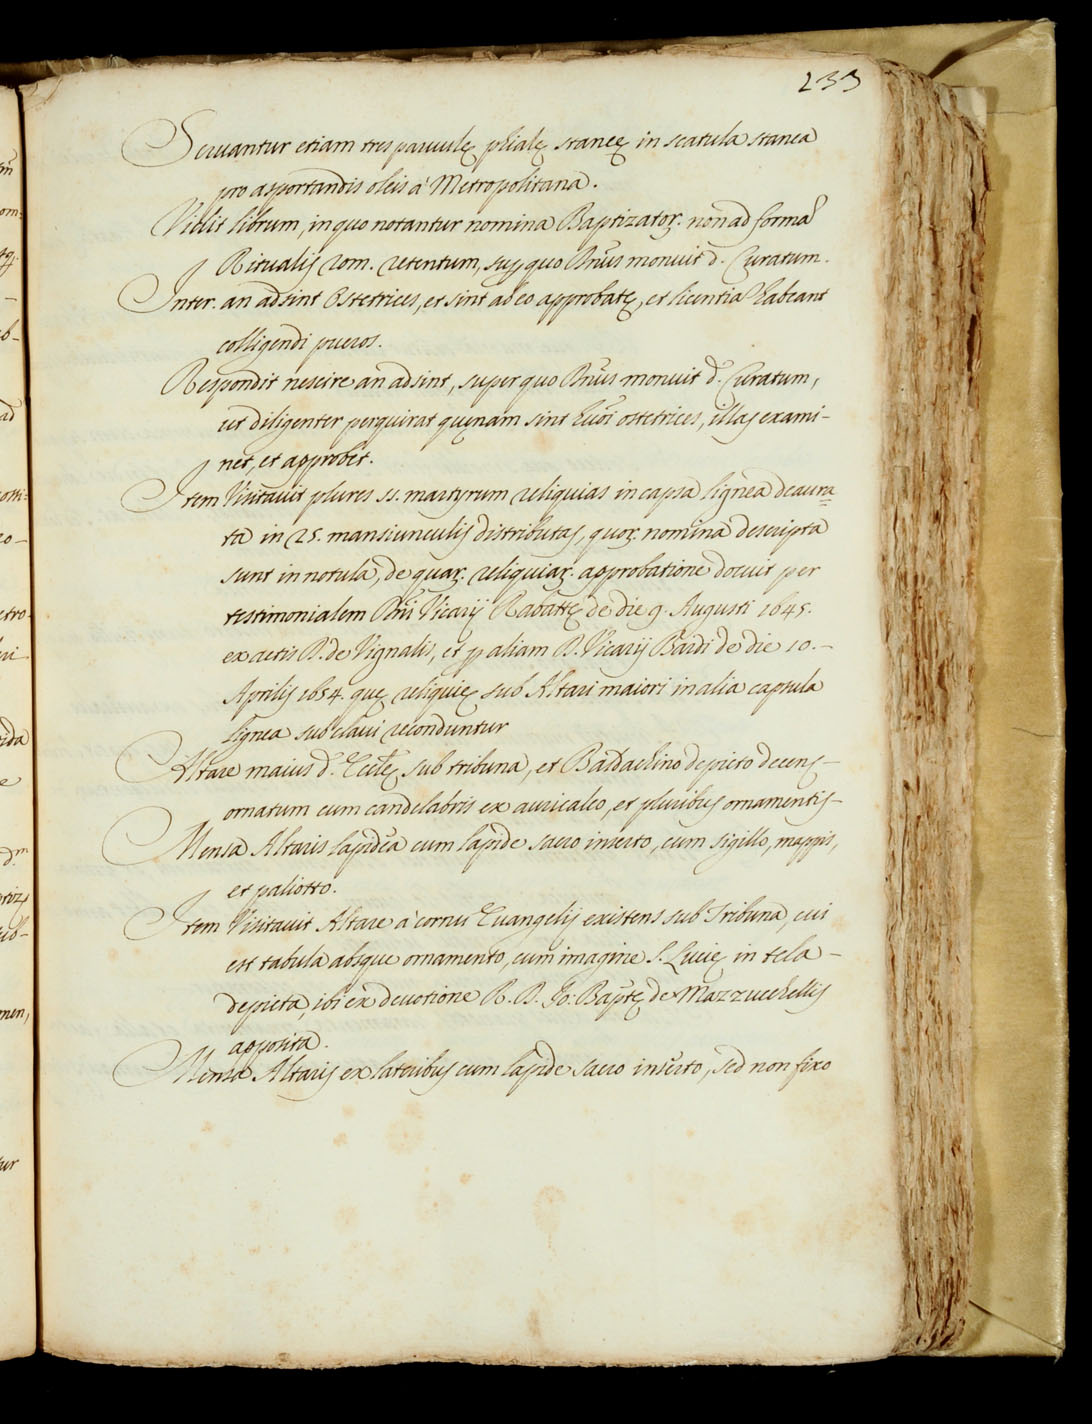 233
Seruantur etiam tres paruulę phialę staneę in scatula stanea
pro asportandis oleis à Metropolitana.
Vidit librum, in quo notantur nomina Baptizatoꝝ. non ad formã
Ritualis rom. retentum, sup quo Ill.mus monuit d. Curatum.
Inter. an adsint Ostetrices, et sint ab eo approbatę, et licentiã habeant
colligendi pueros.
Respondit nescire an adsint, super quo monuit d. Curatum,
ut diligenter perquirat quęnam sint ostetrices, illas exami-
net, et approbet.
Item Visitauit plures ss. martyrum reliquias in capsa lignea deaura
ta in 25. mansiunculis distributas, quoꝝ. nomina descripta
sunt in notula, de quaꝝ. reliquiaꝝ. approbatione docuit per
testimonialem Vicarij Rabattę de die 9. Augusti 1645.
ex actis D. de Vignalis, et p aliam D. Vicarij Bardi de die 10.-
Aprilis 1654. quę reliquię sub Altari maiori in alia capsula
lignea sub claui reconduntur
Altare maius d. Eccl.ę sub tribuna, et Baldachino depicto decens-
ornatum cum candelabris ex auricalco, et pluribus ornamentis-
Mensa Altaris lapidea cum lapide sacro inserto, cum sigillo, mappis,
et paliotto.
Item Visitauit Altare à cornu Euangelij existens sub Tribuna, cui
est tabula absque ornamento, cum imagine S. Lucię in tela -
depicta, ibi ex deuotione R. D. Jo: Baptę de Mazzucchellis
apposita.
Mensa Altaris ex lateribus cum lapide sacro inserto, sed non fixo